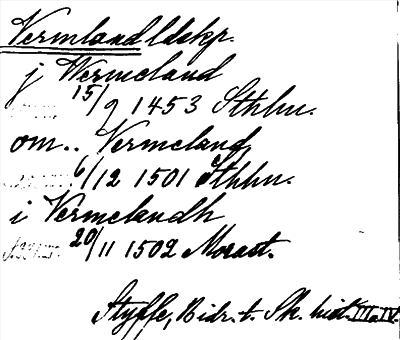 Vermland ldskp.
j Wermeland
15/9 1453 Sthlm.
om.. Vermeland
6/12 1501 Sthlm.
i Vermelandh
20/11 1502 Morast.
Styffe, Bidr. t. Sk. hist. III o. IV.